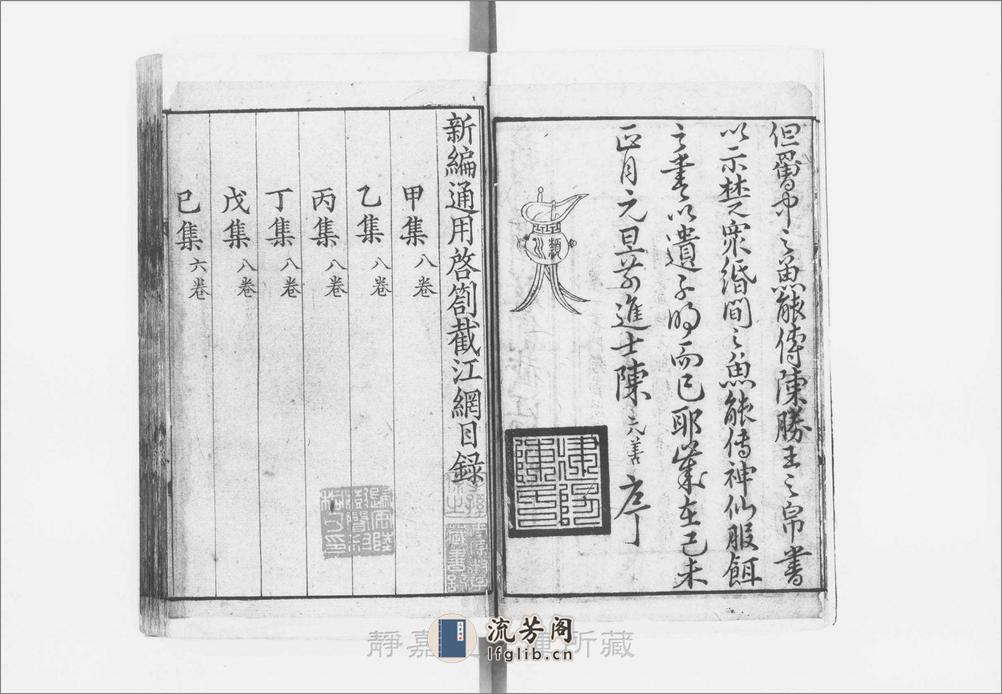 但蜀中之魚能傳陳勝王之帛書
以示楚眾緡間之魚能傳神仙服餌
之書以遺子明而已耶歲在己未
正月元旦前進士陳元善序
新編通用啓劄截江網目録
甲集八卷
乙集八卷
丙集八卷
丁集八卷
戊集八卷
己集六卷
流芳阁
lfglib.cn
靜嘉 所藏